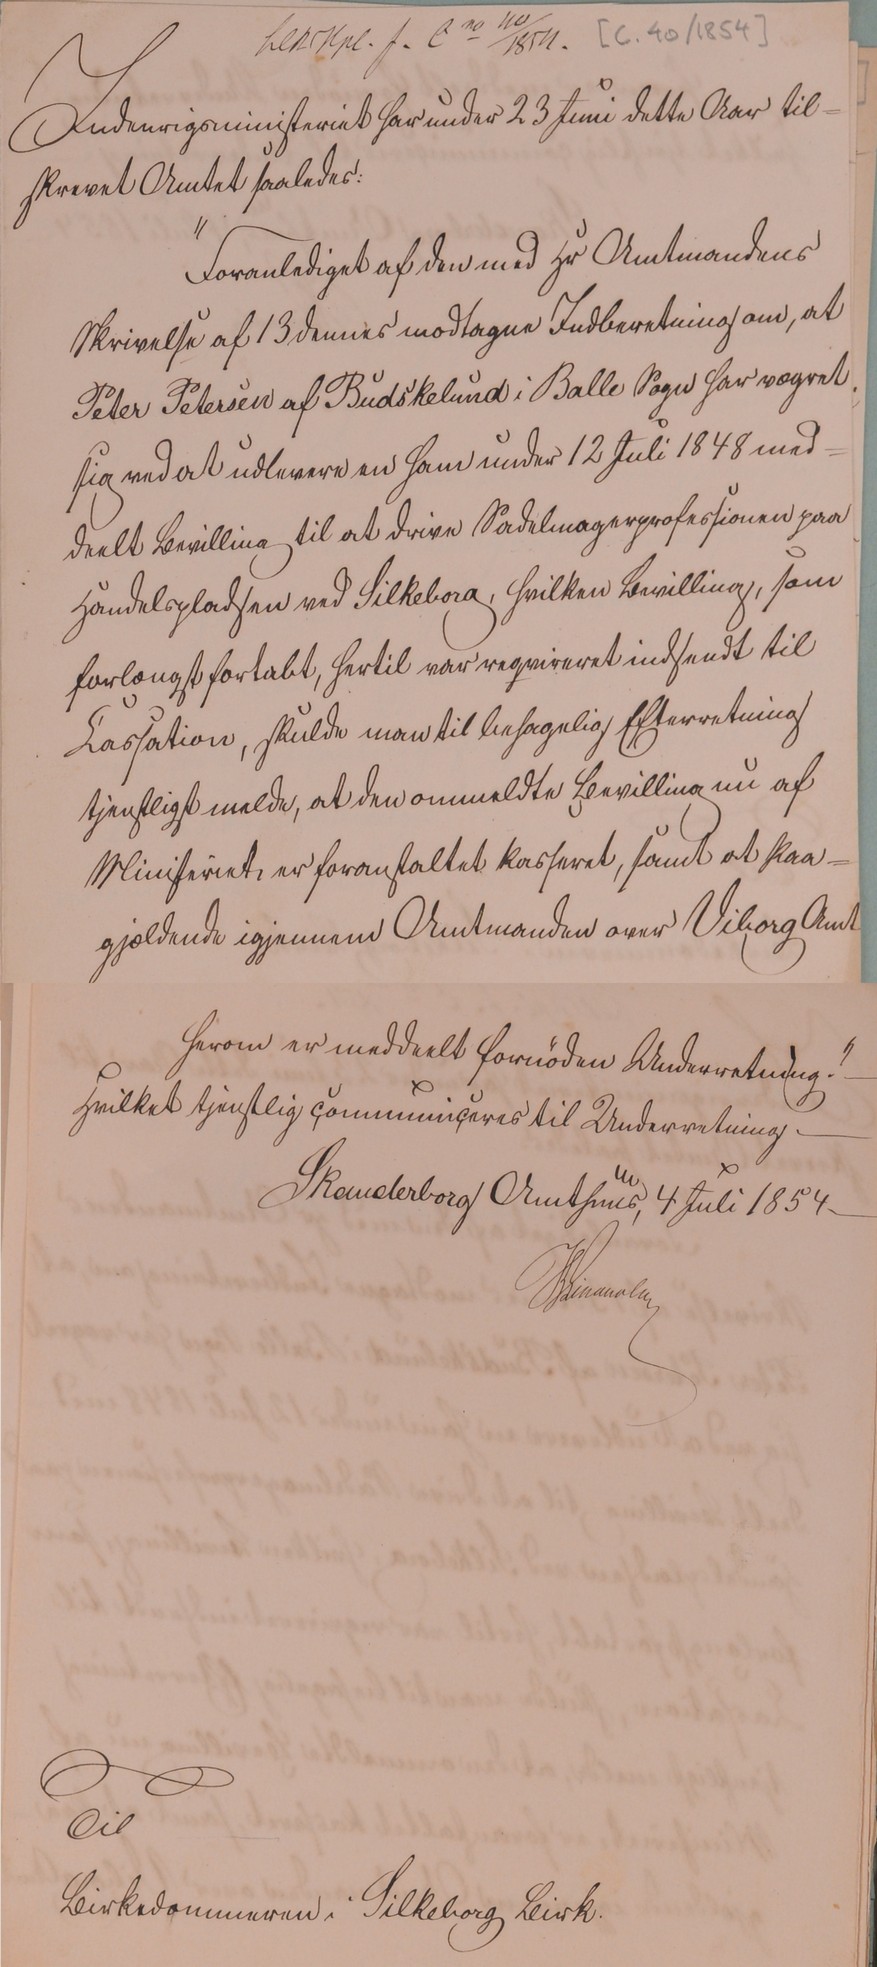 f. C no 40/1854. [C. 40/1854]
Indenrigsministeriet har under 23 Juni dette Aar til-
skrevet Amtet saaledes:
"Foranlediget af den med Hr Amtmandens
Skrivelse af 13 dennes modtagne Indberetning om, at
Peter Petersen af Budskelund i Balle Sogn har vægret
sig ved at udlevere en ham under 12 Juli 1848 med-
deelt Bevilling til at drive Sadelmagerprofessionen paa
Handelspladsen ved Silkeborg, hvilken Bevilling, som
forlængst fortabt, hertil var reqvireret indsendt til
Cassation, skulde man til behagelig Efterretning
tjenstligst melde, at den ommeldte Bevilling nu af
Ministeriet er foranstaltet kasseret, samt at Paa-
gjældende igjennem Amtmanden over Viborg Amt
herom er meddeelt fornöden Underretning."
Hvilket tjenstlig communiceres til Underretning.
Skanderborg Amthuus, 4 Juli 1854
Til
Birkedommeren i Silkeborg Birk.